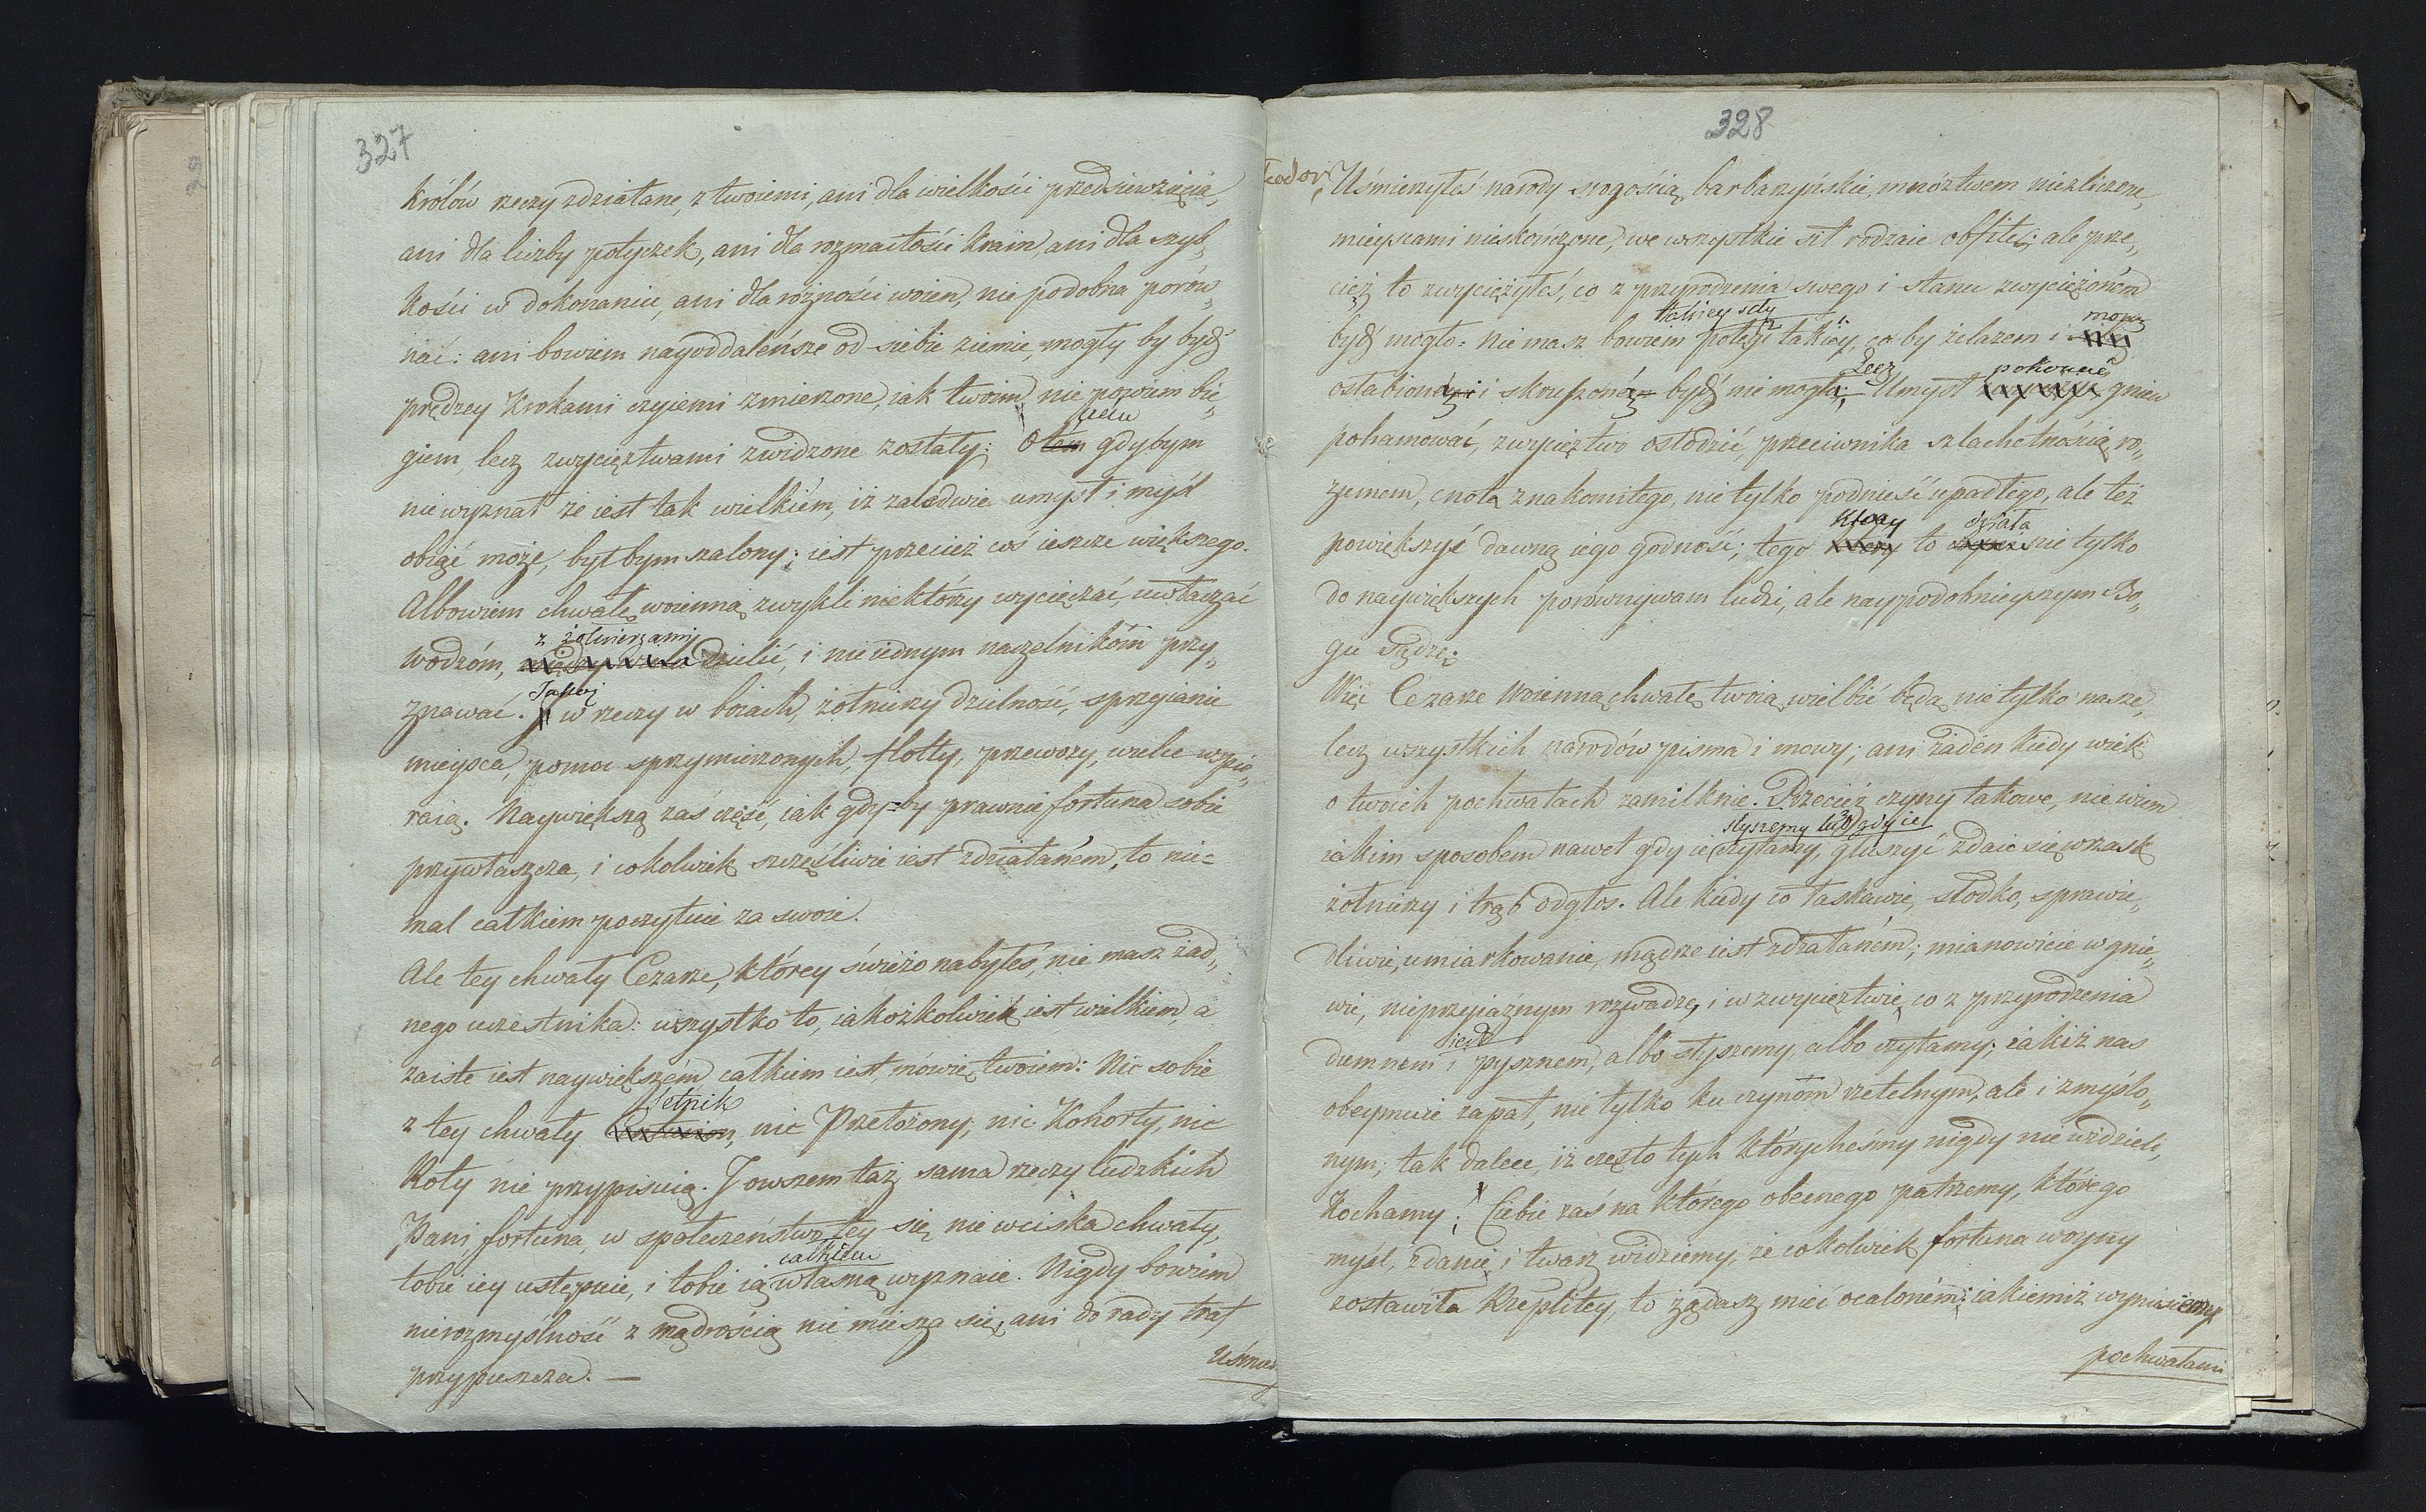 327
Królów rzeczy zdziałane, z twoiemi, ani dla wielkości przedsiewzięcia,
ani dla liczby potyczek, ani dla rozmaitości krain, ani dla szyb„
kości w dokonaniu, ani dla rożności woien, nie podobna porów„
nać: ani bowiem nayoddaleńsze od siebie ziemie, mogły by bydź
prędzey krokami czyiemi zmierzone, iak twoim, nie powiem bie„
giem, lecz zwycięztwami zwidzone zostały: O tem gdybym
nie wyznał że iest tak wielkiém, iż zaledwie umysł i myśl
obiąć może, byłbym szalony; iest przecież coś ieszcze większego.
Albowiem chwałę woienną zwykli niektórzy wycięczać, uwłaczać
z żołnierzami
wodzóm, dzielić, i nie iednym naczelnikóm przy„
Jakoż
znawać. w rzeczy w boiach, żołnierzy dzielność, sprzyianie
mieysca, pomoc sprzymierzonych, flotty, przewozy, wiele wspie„
raią. Naywiększą zaś część, iak gdy-by prawnie fortuna sobie
przywłaszcza, i cokolwiek szczęśliwie iest zdziałaném, to nie=
mal całkiem poczytuie za swoie.
Ale tey chwały Cezarze, którey świéżo nabyłeś, nie masz żad„
nego uczestnika: wszystko to, iakożkolwiek iest wielkiem, a
zaiste iest naywiększém całkiem iest, mówię, twoiem: Nic sobie
Setnik
z tey chwały Centurion, nic Przełożony, nic Kohorty, nic
Roty nie przypisuią. J owszem taż sama rzeczy ludzkich
Pani, fortuna, w społeczeństwo tey się nie wciska chwały,
całkiem
tobie iey ustępuie, i tobie ią własną wyznaie. Nigdy bowiem
nierozmyślność z mądrością nie miesza się, ani do rady traf
przypuszcza. —
Uśmier
328
Uśmierzyłeś narody srogością barbarzyńskie, mnóztwem niezliczone,
mieyscami nieskończone, we wszystkie sił rodzaie obfite; ale prze„
cież to zwyciężyłeś, co z przyrodzenia swego i stanu zwyciężoném
bydź mogło: nie masz bowiem potęgi takiéy, co by żelazem i mocą
Lecz pokonać
osłabioną i skruszoną bydź nie mogła; Umysł gniew
pohamować, zwycięztwo osłodzić, przeciwnika szlachetnością, ro„
zumem, cnotą znakomitego, nie tylko podnieść upadłego, ale też
który działa
powiększyć dawną iego godność; tego to nie tylko
do naywiększych porównywam ludzi, ale naypodobnieyszym Bo„
gu sądzę.
Więc Cezarze woienną chwałę twoią wielbić będą nie tylko nasze,
lecz wszystkich narodów pisma i mowy; ani żaden kiedy wiek
o twoich pochwałach zamilknie. Przecież czyny takowe, nie wiem
słyszemy lub gdy ie
iakim sposobem nawet gdy ie czytamy, głuszyć zdaie się wrzask
żołnierzy i trąb odgłos. Ale kiedy co łaskawie, słodko, sprawie„
dliwie, umiarkowanie, mądrze iest zdziałaném; mianowicie w gnie„
wie, nieprzyiaźnym rozwadze, i w zwycięztwie, co z przyrodzenia
iest
dumnem i pysznem, albo słyszemy, albo czytamy; iakiż nas
obeymuie zapał, nie tylko ku czynóm rzetelnym, ale i zmyślo„
nym; tak dalece, iż często tych którycheśmy nigdy nie widzieli,
kochamy; Ciebie zaś na którego obecnego patrzemy, którego
myśl, zdanie i twarz widziemy, że cokolwiek fortuna woyny
zostawiła Rzeplitey, to żądasz mieć ocaloném: iakiemiż wyniesiemy
pochwałami